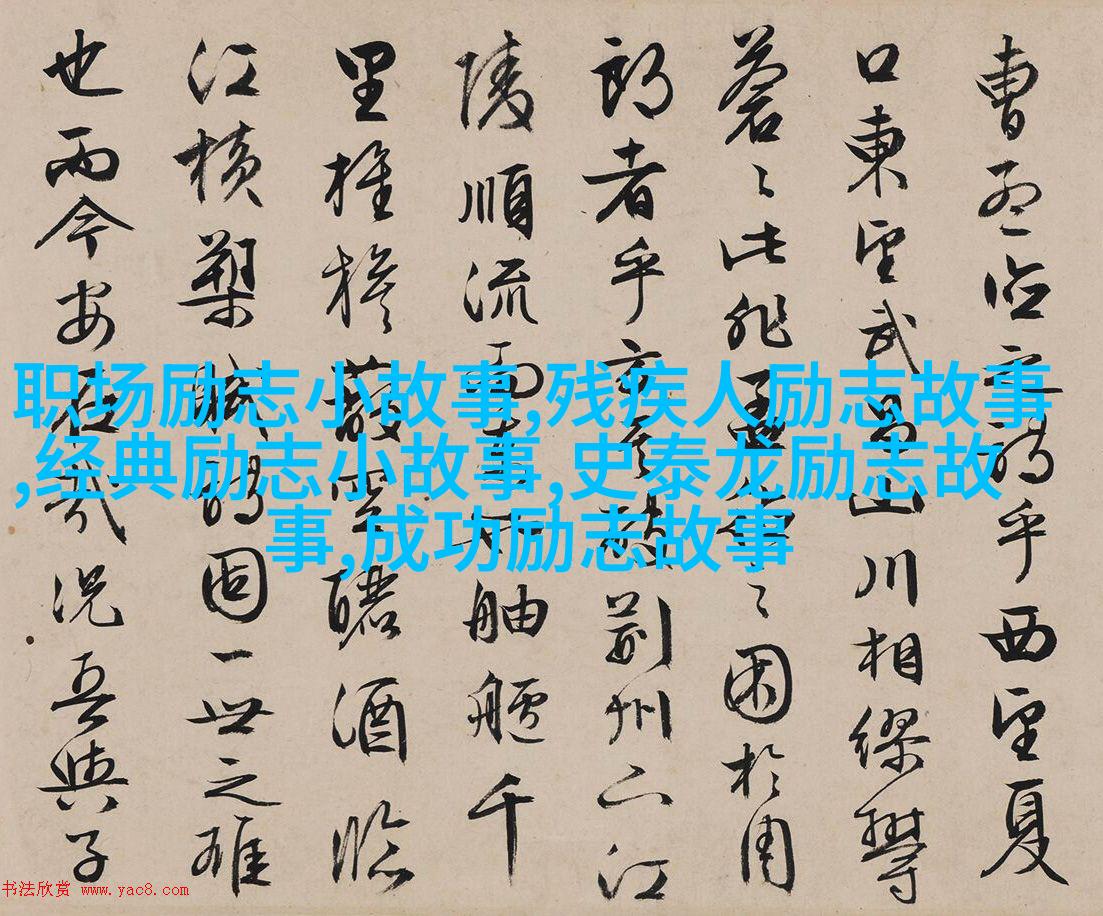 曹孟德之詩乎西望夏
口東望武昌山川相繆欝
蒼〻此非孟德之困於周
郎者乎方其破荊州下江
陵順流而東也舳艫千
里旌旗蔽空釃酒臨
江橫槊賦詩固一世之雄
也而今安在哉況吾與子
职场励志小故事,残疾人励志故事
,经典励志小故事,史泰龙励志故
事,成功励志故事
书法欣赏 www.yac8.com